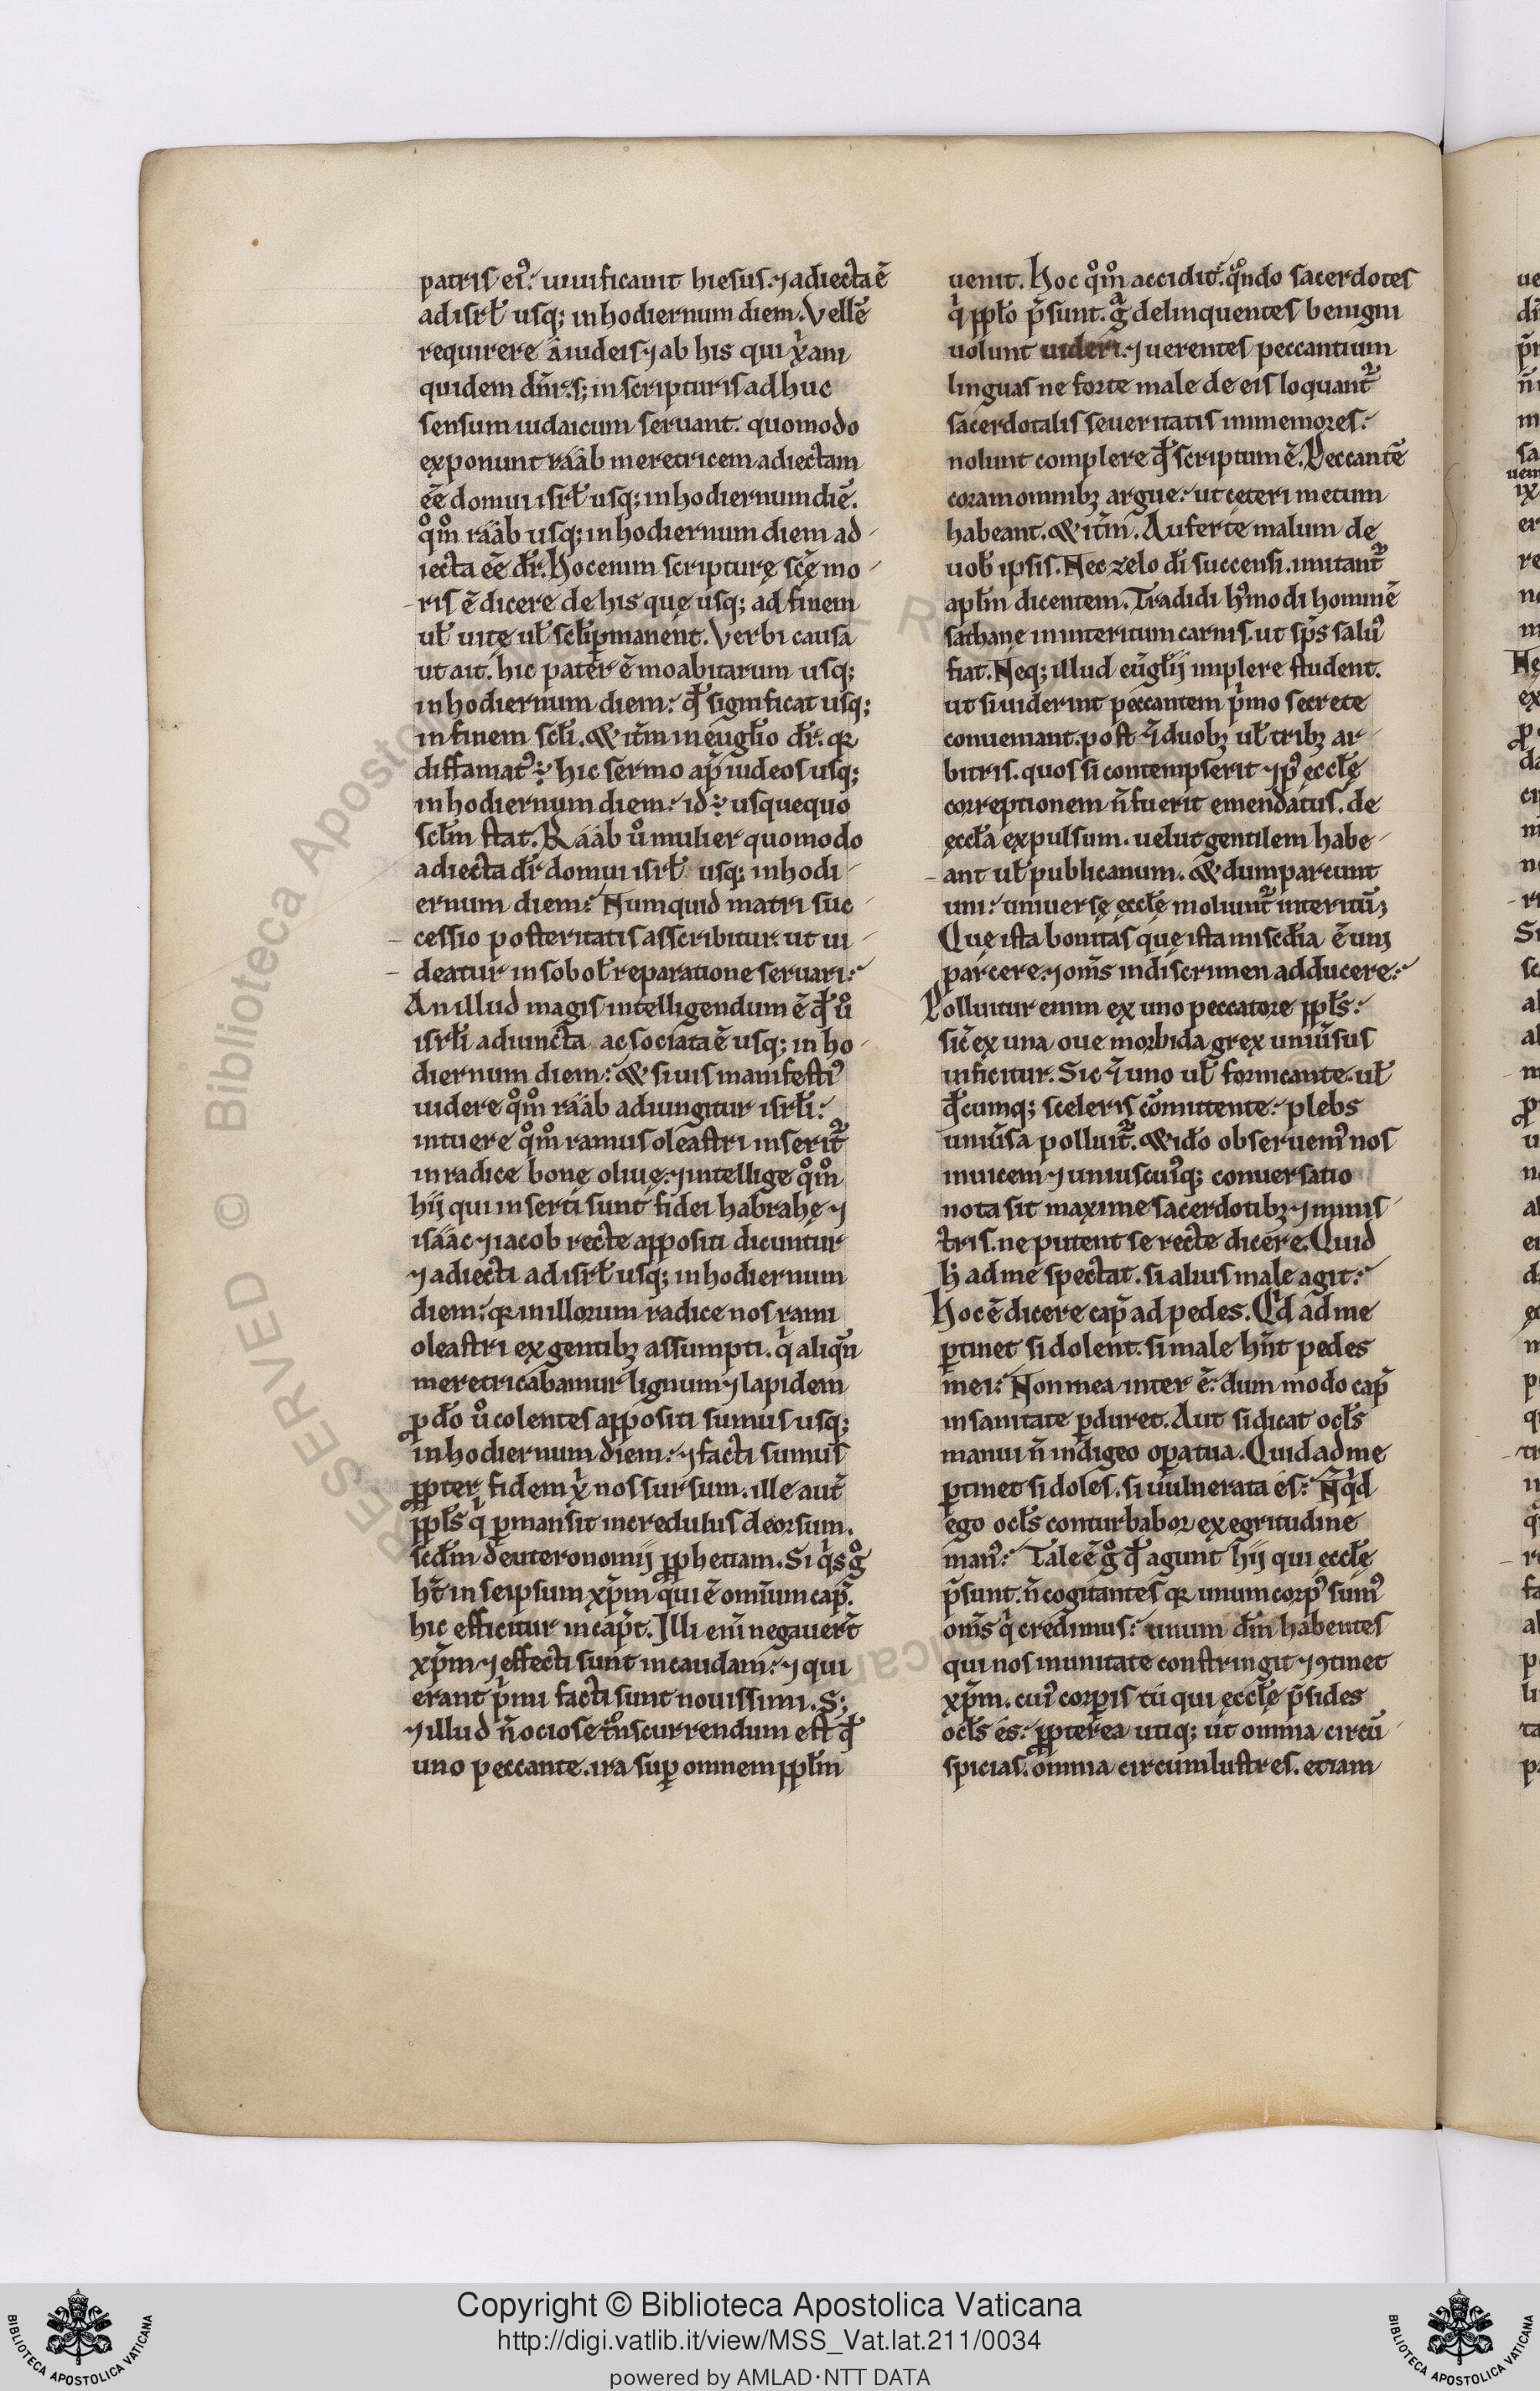 patris ei᷒. uiuificauit hiesus. ⁊ adiecta ē
ad isrł usq; in hodiernum diem. Vellē
requirere a iudeis ⁊ ab his qui xp̄iani
quidem dn̄r. s; in scripturis adhuc
sensum iudaicum seruant. quomodo
exponunt raab meretricem adiectam
ēē domui isrł usq; in hodiernum diē.
qͦm̊ raab usq; in hodiernum diem ad-
iecta ēē dr̄. Hoc enim scripturę scę̄ mo-
ris ē dicere de his quę usq; ad finem
uł uitę uł scłi ꝑmanent. Verbi causa
ut ait. hic pater ē moabitarum usq;
in hodiernum diem. qđ significat usq;
in finem scłi. & itm̄ in euuglio dr̄. qr
diffamatꝰ ÷ hic sermo ap̄ iudeos usq;
in hodiernum diem. id ÷ usquequo
scłm stat. Raab ů mulier quomodo
adiecta dr̄ domui isrł usq; in hodi-
ernum diem? Numquid matri suc-
cessio posteritatis asscribitur. ut ui-
deatur in soboł reparatione seruari?
An illud magis intelligendum ē qđ ů
isrłi adiuncta ac sociata ē usq; in ho-
diernum diem? & si uis manifestiꝰ
uidere qͦm̊ raab adiungitur isrłi?
intuere qͦm̊ ramus oleastri inserit᷑
in radice bonę oliuę. ⁊ intellige qͦm̊
hij qui inserti sunt fidei habrahę ⁊
isaac ⁊ iacob recte appositi dicuntur
⁊ adiecti ad isrł usq; in hodiernum
diem. qr in illorum radice nos rami
oleastri ex gentibꝫ assumpti. qͥ aliqn̄
meretricabamur lignum ⁊ lapidem
ꝓ dō ů colentes appositi sumus usq;
in hodiernum diem. ⁊ facti sumus
ꝓpter fidem xͥ nos sursum. ille aut̄
ppłs qͥ ꝑmansit incredulus deorsum.
scđm deuteronomij ꝓphetiam. Si qͥs gͦ
ht̄ in seipsum xp̄m qui ē omīum cap̄.
hic efficitur in cap̄t. Illi eni̅ negauert̄
xp̄m ⁊ effecti sunt in caudam. ⁊ qui
erant pͥmi facti sunt nouissimi. S;
⁊ illud n̄ ociose tn̄scurrendum est qđ
uno peccante. ira suꝑ omnem ppłm
uenit. Hoc qͦm̊ accidit? qͦndo sacerdotes
qͥ ppło p̄sunt. gͣ delinquentes benigni
uolunt uideri. ⁊ uerentes peccantium
linguas ne forte male de eis loquant᷑
sacerdotalis seueritatis immemores.
nolunt complere qđ scriptum ē. Peccantē
coram omnibꝫ argue. ut ceteri metum
habeant. & itm̄. Auferte malum de
uob̄ ipsis. Nec zelo dī succensi. imitant᷑
apłm dicentem. Tradidi hꝰmodi hominē
sathanę in interitum carnis. ut sp̄s saluꝰ
fiat. Neq; illud eu̅głij implere student.
ut si uiderint peccantem pͥmo secrete
conueniant. post ⁊̄ duobꝫ uł tribꝫ ar-
bitris. quos si contempserit ⁊ pꝰ eccłę
correptionem n̄ fuerit emendatus. de
eccła expulsum. uelut gentilem habe-
ant uł publicanum. & dum parcunt
uni. uniuersę eccłę moliunt᷑ interitū;
Quę ista bonitas quę ista miscd̄ia ē uni
parcere. ⁊ oms̄ in discrimen adducere?
Polluitur enim ex uno peccatore ppłs.
sic̄ ex una oue morbida grex uniu̅sus
inficitur. Sic ⁊̄ uno uł fornicante. uł
qđcumq; sceleris cōmittente. plebs
uniu̅sa polluit᷑. & ido obseruemꝰ nos
inuicem ⁊ uniuscuiꝰq; conuersatio
nota sit maxime sacerdotibꝫ ⁊ minis-
tris. ne putent se recte dicere. Quid
hͥ ad me spectat. si alius male agit?
Hoc ē dicere cap̄ ad pedes. Qͥd ad me
ꝑtinet si dolent. si male hn̄t pedes
mei? Non mea inter ē. dum modo cap̄
in sanitate ꝑduret. Aut si dicat ocłs
manui n̄ indigeo oꝑa tua. Quid ad me
ꝑtinet si doles. si uulnerata es? Nͣqͥd
ego ocłs conturbabor ex egritudine
manꝰ? Tale ē gͦ qđ agunt hij qui eccłę
p̄sunt. n̄ cogitantes qr unum corpꝰ sumꝰ
oms̄ qͥ credimus. unum dm̄ habentes
qui nos in unitate constringit ⁊ ꝯtinet
xp̄m. cuiꝰ corꝑis tu qui eccłę p̄sides
ocłs es. ꝓpterea utiq; ut omnia circū-
spicias. omnia circumlustres. etiam
Copyright © Biblioteca Apostolica Vaticana
http://digi.vatlib.it/view/MSS_Vat.lat.211/0034
powered by AMLAD·NTT DATA